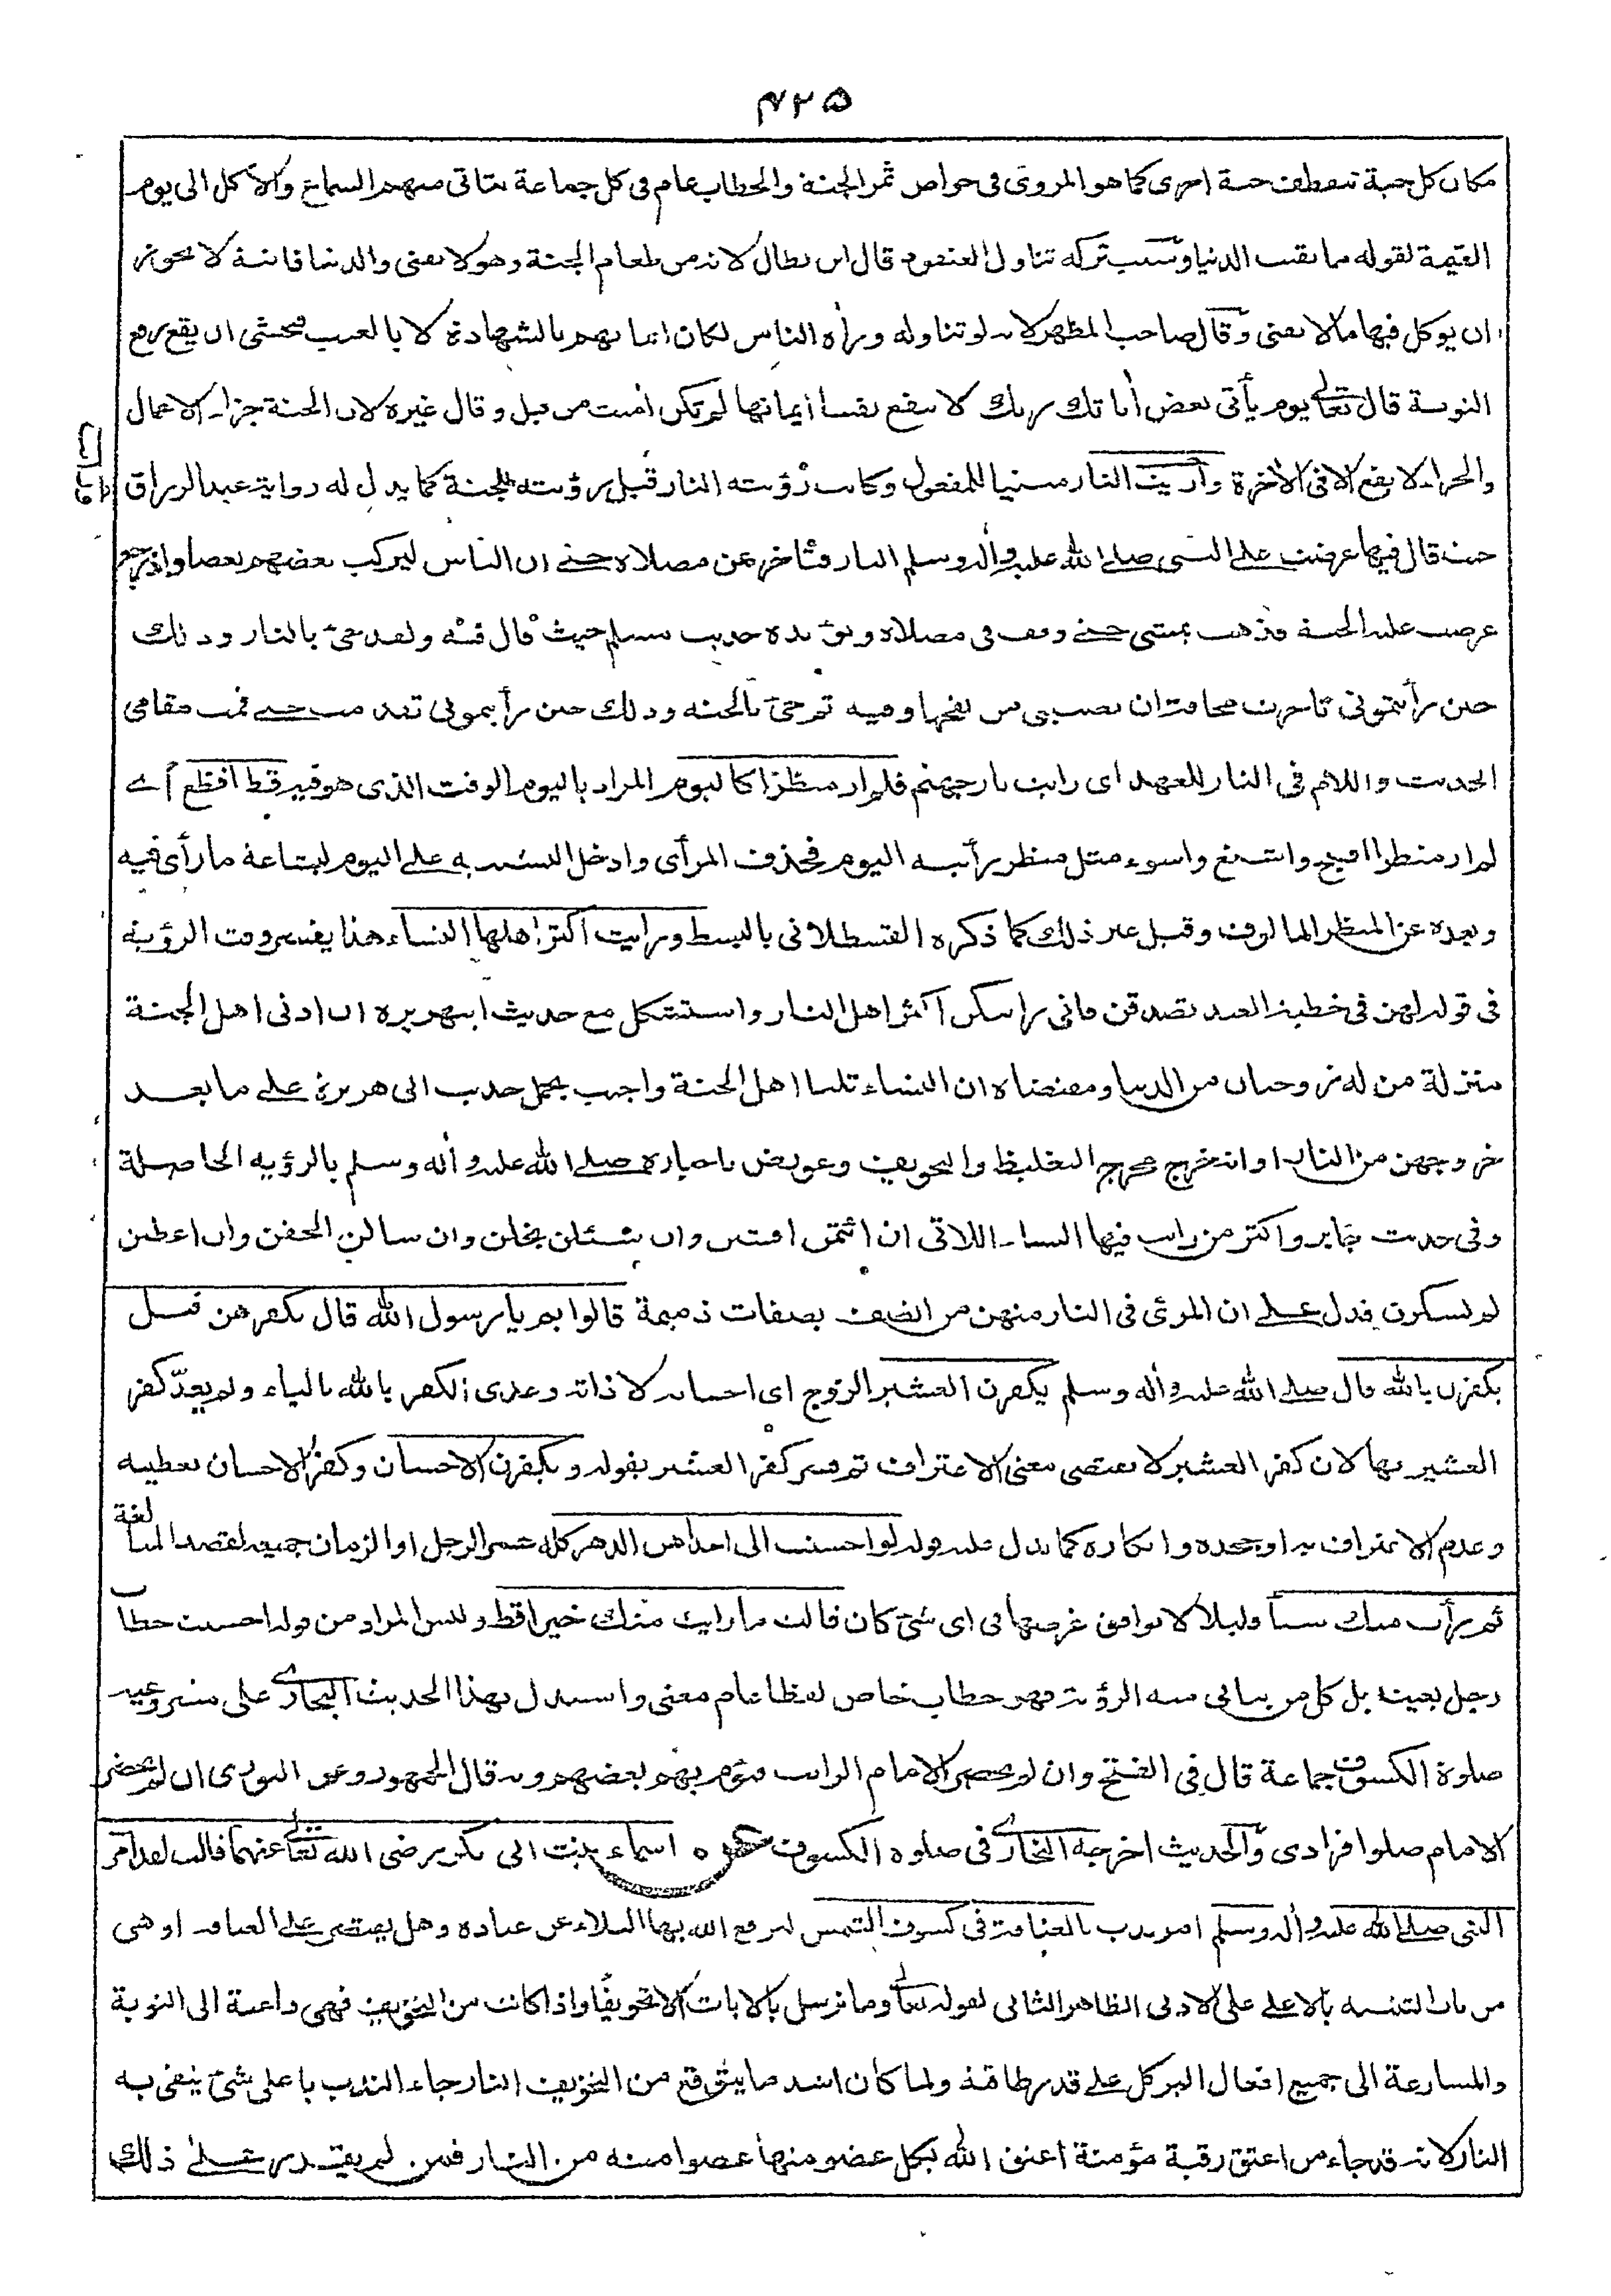 ٤٢٥
مكان كل حبة تنعطف حبة اخرى كما هو المروى فى خواص ثمر الجنة والخطاب عام فى كل جماعة يتاتى منهم السماع والأكل الى يوم
القيمة لقوله ما بقيت الدنيا وسبب تركه تناول العنقود قال ابن بطال لانه من طعام الجنة وهو لا يفنى والدنيا فانية لا يجوز
ان يوكل فيها ما لا يفنى وقال صاحب المظهر لانه لو تناوله ورأه الناس لكان ايمانهم بالشهادة لا بالغيب فيخشى ان يقع رفع
التوبة قال تعالى يوم يأتى بعض أيات ربك لا ينفع نفسا ايمانها لم تكن أمنت من قبل وقال غيره لان الجنة جزاء الاعمال
والجزاء لا يقع الا فى الأخرة وأريت النار مبنيا للمفعول وكانت رؤيته النار قبل رؤيته للجنة كما يدل له رواية عبد الرزاق
حيث قال فيها عرضت على النبى صلى الله عليه وأله وسلم النار فتأخر عن مصلاه حتى ان الناس ليركب بعضهم بعضا واذ رجع
عرضت عليه الجنة فذهب يمشى حتى وقف فى مصلاه ويؤيده حديث مسلم حيث قال فيه ولقد جئ بالنار وذلك
حين رأيتمونى تاخرت مخافة ان يصيبنى من لفحها وفيه ثم جئ بالجنة وذلك حين رأيتمونى تقدمت حتى قمت مقامى
الحديث واللام فى النار للعهد اى رايت نار جهنم فلم ار منظرا كاليوم المراد باليوم الوقت الذى هو فيه قط افظع أى
لم ار منظرا اقبح واشنع واسوء مثل منظر رأيته اليوم فحذف المرأى وادخل التشبيه على اليوم لبشاعة ما رأى فيه
وبعده عن المنظر المالوف وقيل غير ذلك كما ذكره القسطلانى بالبسط ورايت اكثر اهلها النساء هذا يفسر وقت الرؤية
فى قوله لهن فى خطبة العيد تصدقن فانى رايتكن اكثر اهل النار واستشكل مع حديث ابيهريره ان ادنى اهل الجنة
منزلة من له زوجتان من الدنيا ومقتضاه ان النساء ثلثا اهل الجنة واجيب بحمل حديث ابى هريرة على ما بعد
خروجهن من النار او انه خرج مخرج التغليظ والتخويف وعورض باخباره صلى الله عليه وأله وسلم بالرؤيه الحاصلة
وفى حديث جابر واكثر من رايت فيها النساء اللاتى ان ائتمن افشين وان يسئلن بخلن وان سالن الحفن وان اعطين
لم يشكرن فدل على ان المرئى فى النار منهن من اتصف بصفات ذميمة قالوا بم يا رسول الله قال بكفرهن قيل
يكفرن بالله قال صلى الله عليه وأله وسلم يكفرن العشير الزوج اى احسانه لا ذاته وعدى الكفر بالله بالباء ولم يعدّ كفر
العشير بها لان كفر العشير لا يتضمن معنى الاعتراف ثم فسر كفر العشير بقوله ويكفرن الاحسان وكفر الاحسان تغطيته
وعدم الاعتراف به او جحده وانكاره كما يدل عليه قوله لو احسنت الى احداهن الدهر كله عمر الرجل او الزمان جميعه لقصد المبالغة
ثم رأت منك شيأ قليلا لا يوافق غرضها فى اى شئ كان قالت ما رايت منك خيرا قط وليس المراد من قوله احسنت خطاب
رجل بعينه بل كل من يتاتى منه الرؤية فهو خطاب خاص لفظا عام معنى واستدل بهذا الحديث البخارى على مشروعية
صلوة الكسوف جماعة قال فى الفتح وان لم يحضر الامام الراتب فيؤم بهم بعضهم وبه قال الجمهور وعن الثورى ان لم يحضر
الامام صلوا فرادى والحديث اخرجه البخارى فى صلوة الكسوف اسماء بنت ابى بكر رضى الله تعالى عنهما قالت لقد امر
النبى صلى الله عليه وأله وسلم امر ندب بالعتاقة فى كسوف الشمس ليرفع الله بها البلاء عن عباده وهل يقتصر على العتاقة او هى
من باب التنبيه بالاعلى على الادنى الظاهر الثانى لقوله تعالى وما نرسل بالايات الا تخويفا واذا كانت من التخويف فهى داعية الى التوبة
والمسارعة الى جميع افعال البر كل على قدر طاقته ولما كان اشد ما يتوقع من التخويف النار جاء الندب باعلى شئ يتقى به
النار لانه قد جاء من اعتق رقبة مؤمنة أعتق الله بكل عضو منها عضوا منه من النار فمن لم يقدر على ذلك